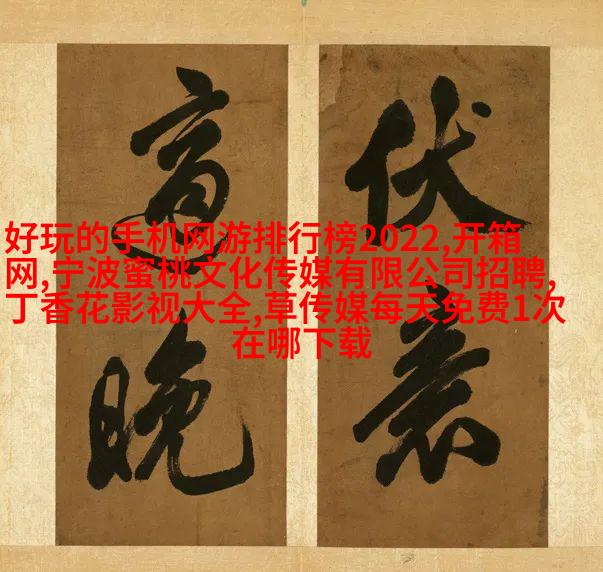 好玩的手机网游排行榜2022,开箱
网,宁波蜜桃文化传媒有限公司招聘,
丁香花影视大全,草传媒每天免费1次
在哪下载
伏
晚